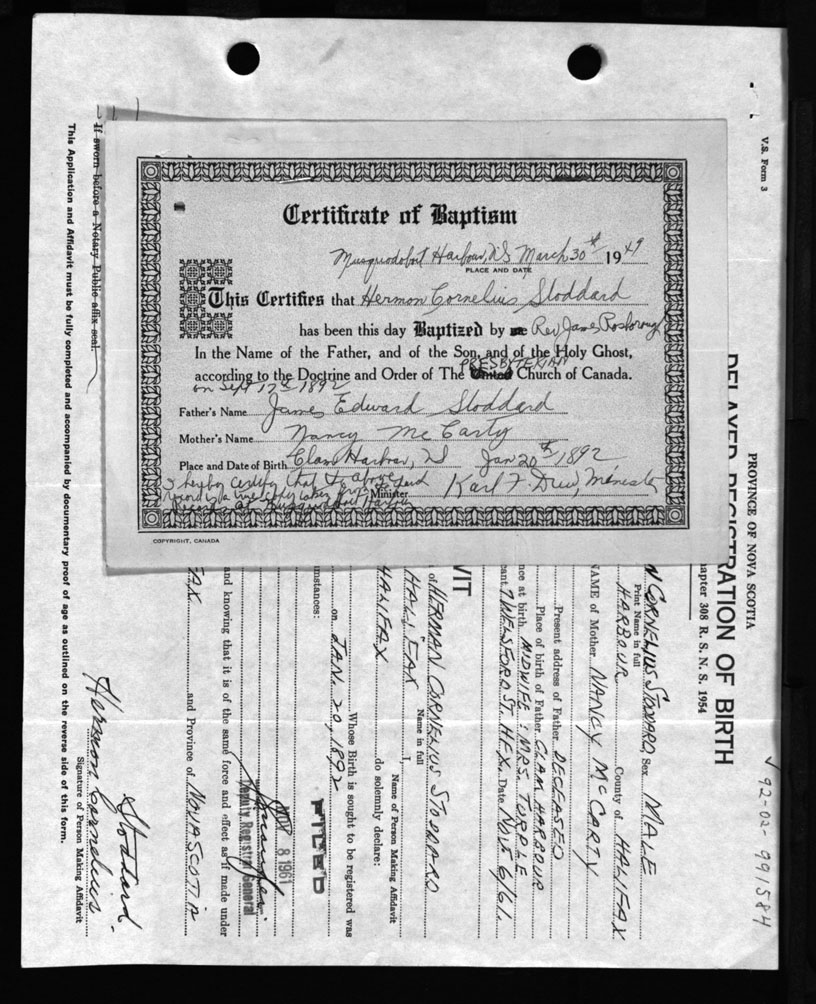 Certificate of Baptism
Musquodoboit Harbour, NS March 30th 1949
PLACE AND DATE
This Certifies that Hermon Cornelius Stoddard
has been this day Baptized by Rev James Rosborough
In the Name of the Father, and of the Son, and of the Holy Ghost,
PRESBYTERIAN
according to the Doctrine and Order of The United Church of Canada.
on Sept 17th 1892
Father's Name James Edward Stoddard
Mother's Name Nancy McCarty
Place and Date of Birth Clam Harbour, NS Jan 20th 1892
I hereby certify that the above
record is a true copy taken from
Records at Musquodoboit Harbour
Minister Karl F. Drew, Minister
COPYRIGHT, CANADA
V.S. Form 3
PROVINCE OF NOVA SCOTIA
DELAYED REGISTRATION OF BIRTH
hapter 308 R. S. N. S. 1954
✓ 92-02-991584
N CORNELIUS STODDARD Sex MALE
Print Name in full
HARBOUR County of HALIFAX
NAME of Mother NANCY McCARTY
Present address of Father DECEASED
Place of birth of Father CLAM HARBOUR
nce at birth MIDWIFE: MRS. TURPLE
ant 7 WELSFORD ST. HFX. Date NOV 6/61
VIT
of HERMAN CORNELIUS STODDARD
Name in full
HALIFAX I,
Name of Person Making Affidavit
HALIFAX do solemnly declare:
Whose Birth is sought to be registered was
on JAN. 20, 1892
mstances:
FILED
NOV 8 1961
Deputy Registrar General
and knowing that it is of the same force and effect as if made under
FAX and Province of NOVA SCOTIA
Hermon Cornelius Stoddard
Signature of Person Making Affidavit
If sworn before a Notary Public affix seal.
This Application and Affidavit must be fully completed and accompanied by documentary proof of age as outlined on the reverse side of this form.